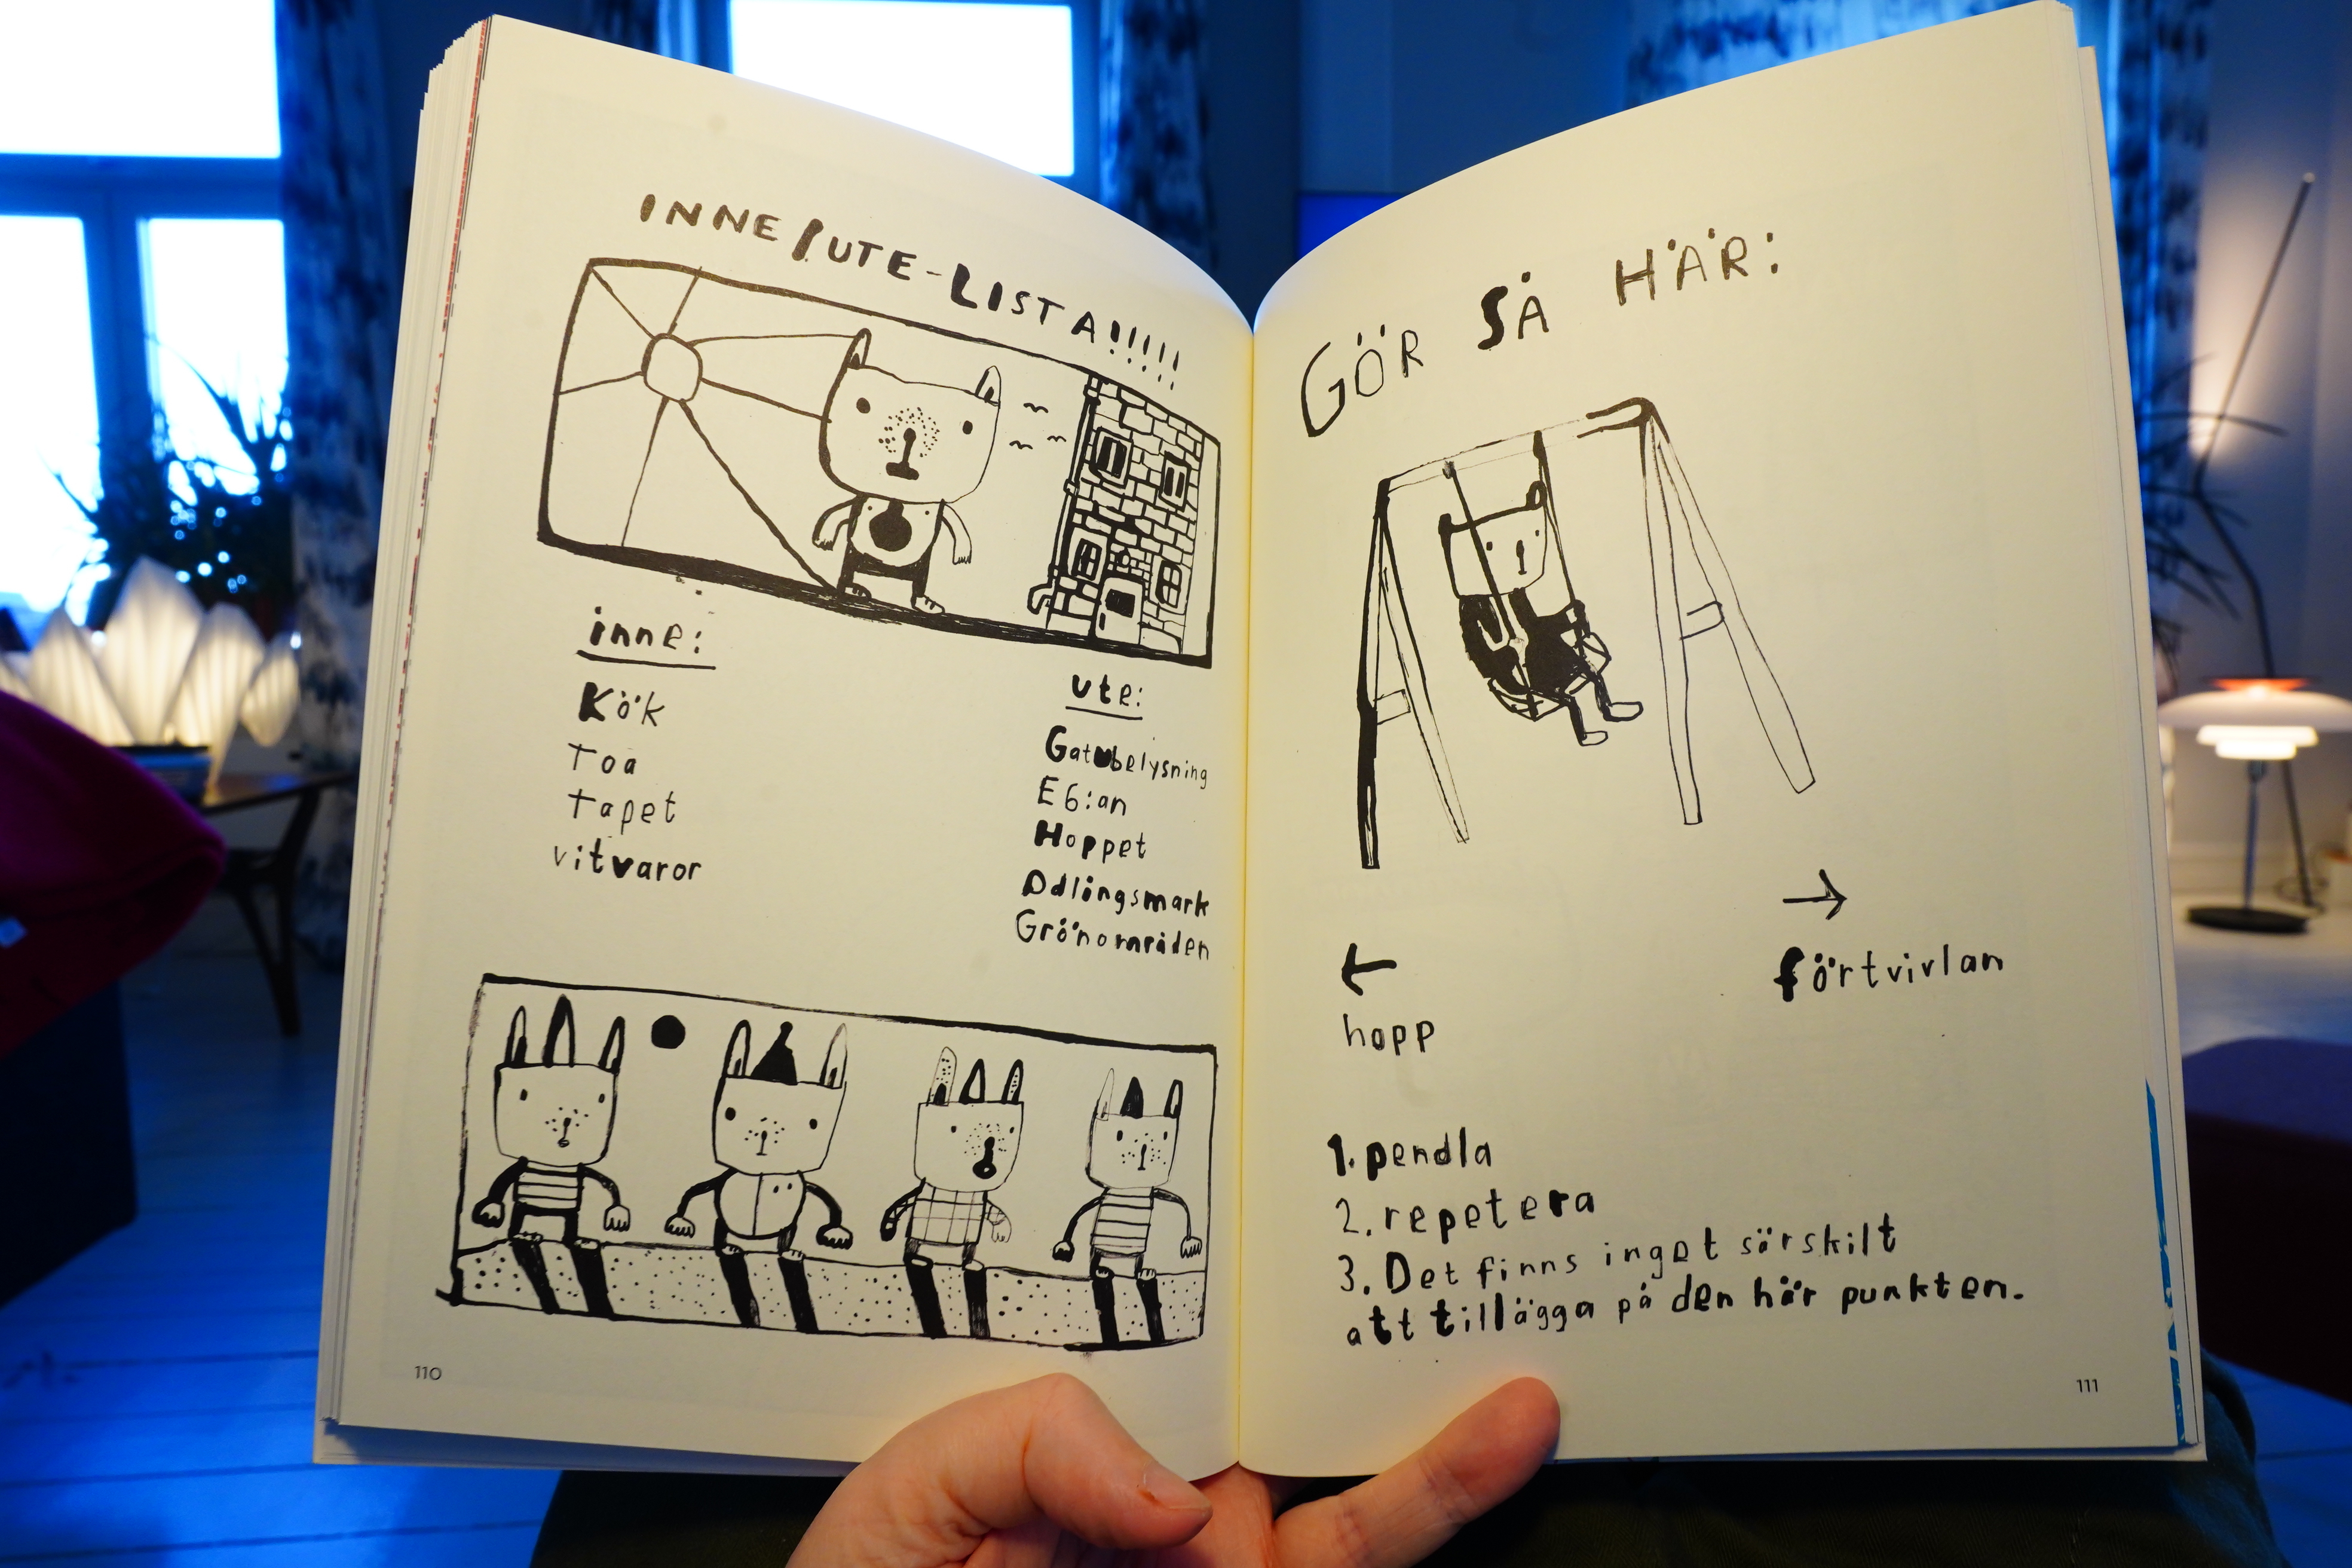 INNE/UTE-LISTA!!!!!
inne:
Kök
Toa
Tapet
vitvaror
ute:
Gatubelysning
E6:an
Hoppet
Odlingsmark
Grönområden
110
GÖR SÅ HÄR:
→
förtvivlan
←
hopp
1. pendla
2. repetera
3. Det finns inget särskilt
att tillägga på den här punkten.
111